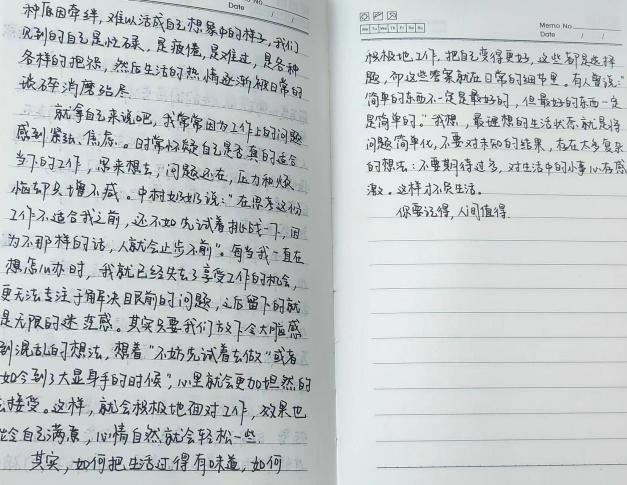 Date
种原因牵绊，难以活成自己想象中的样子，我们
见到的自己是忙碌，是疲惫，是难过，是各种
各样的抱怨，然后生活的热情逐渐被日常的
琐碎消磨殆尽
就拿自己来说吧，我常常因为工作上的问题
感到紧张、焦虑。日时常怀疑自己是否真的适合
当下的工作，思来想去，问题还在，压力和烦
恼却只增不减。中村奶奶说："在思考这份
工作不适合我之前，还不如先试着挑战一下，因
为不那样的话，人就会止步不前"。每当我一直在
想怎么办时，我就已经失去了享受工作的机会，
更无法专注于解决目前的问题，之后留下的就
是无限的迷茫感。其实只要我们放下令大脑感
到混乱的想法，想着"不妨先试着去做"或者
如今到了大显身手的时候"，心里就会更加坦然的
去接受。这样，就会积极地面对工作，效果也
会令自己满意，心情自然就会轻松一些
其实，如何把生活过得有味道，如何
Memo No.
Mo Tu We Th Fr Sa Su
Date / /
积极地工作，把自己变得更好，这些都是选择
题，而这些答案就在日常的细节里。有人曾说："
简单的东西不一定是最好的，但最好的东西一定
是简单的。"我想，最理想的生活状态就是将
问题简单化，不要对未知的结果，存在太多复杂
的想法；不要期待过多，对生活中的小事心存感
激。这样才不负生活。
你要记得，人间值得